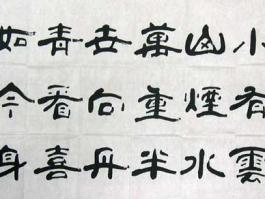 小有雲
山煙水
萬重半
世向丹
青看喜
如今身